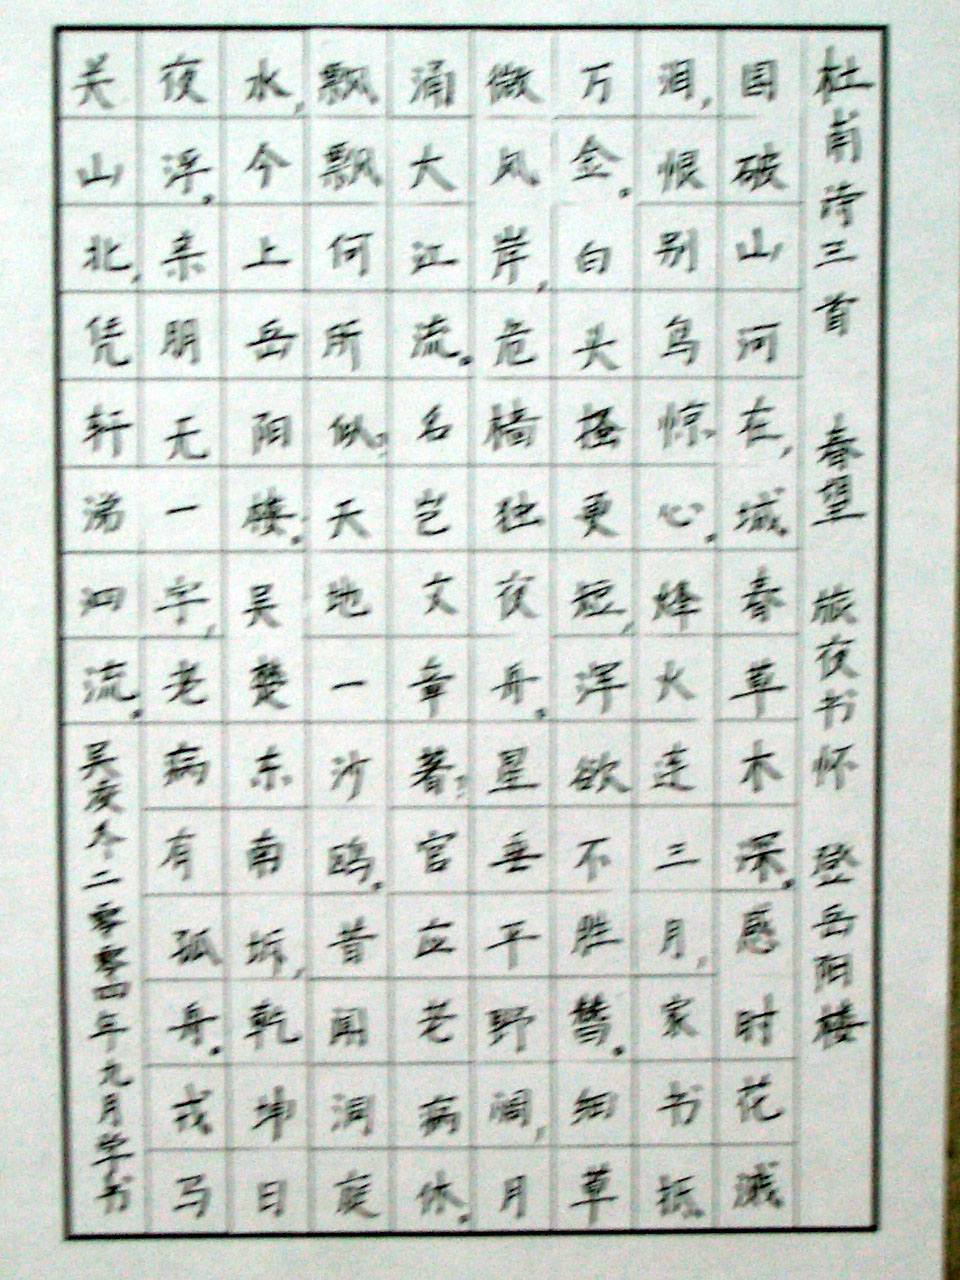 杜甫诗三首 春望 旅夜书怀 登岳阳楼
国破山河在,城春草木深。感时花溅
泪,恨别鸟惊心。烽火连三月,家书抵
万金。白头搔更短,浑欲不胜簪。细草
微风岸,危樯独夜舟。星垂平野阔,月
涌大江流。名岂文章著?官应老病休。
飘飘何所似?天地一沙鸥。昔闻洞庭
水,今上岳阳楼。吴楚东南坼,乾坤日
夜浮。亲朋无一字,老病有孤舟。戎马
关山北,凭轩涕泗流。吴 冬二零零四年九月学书